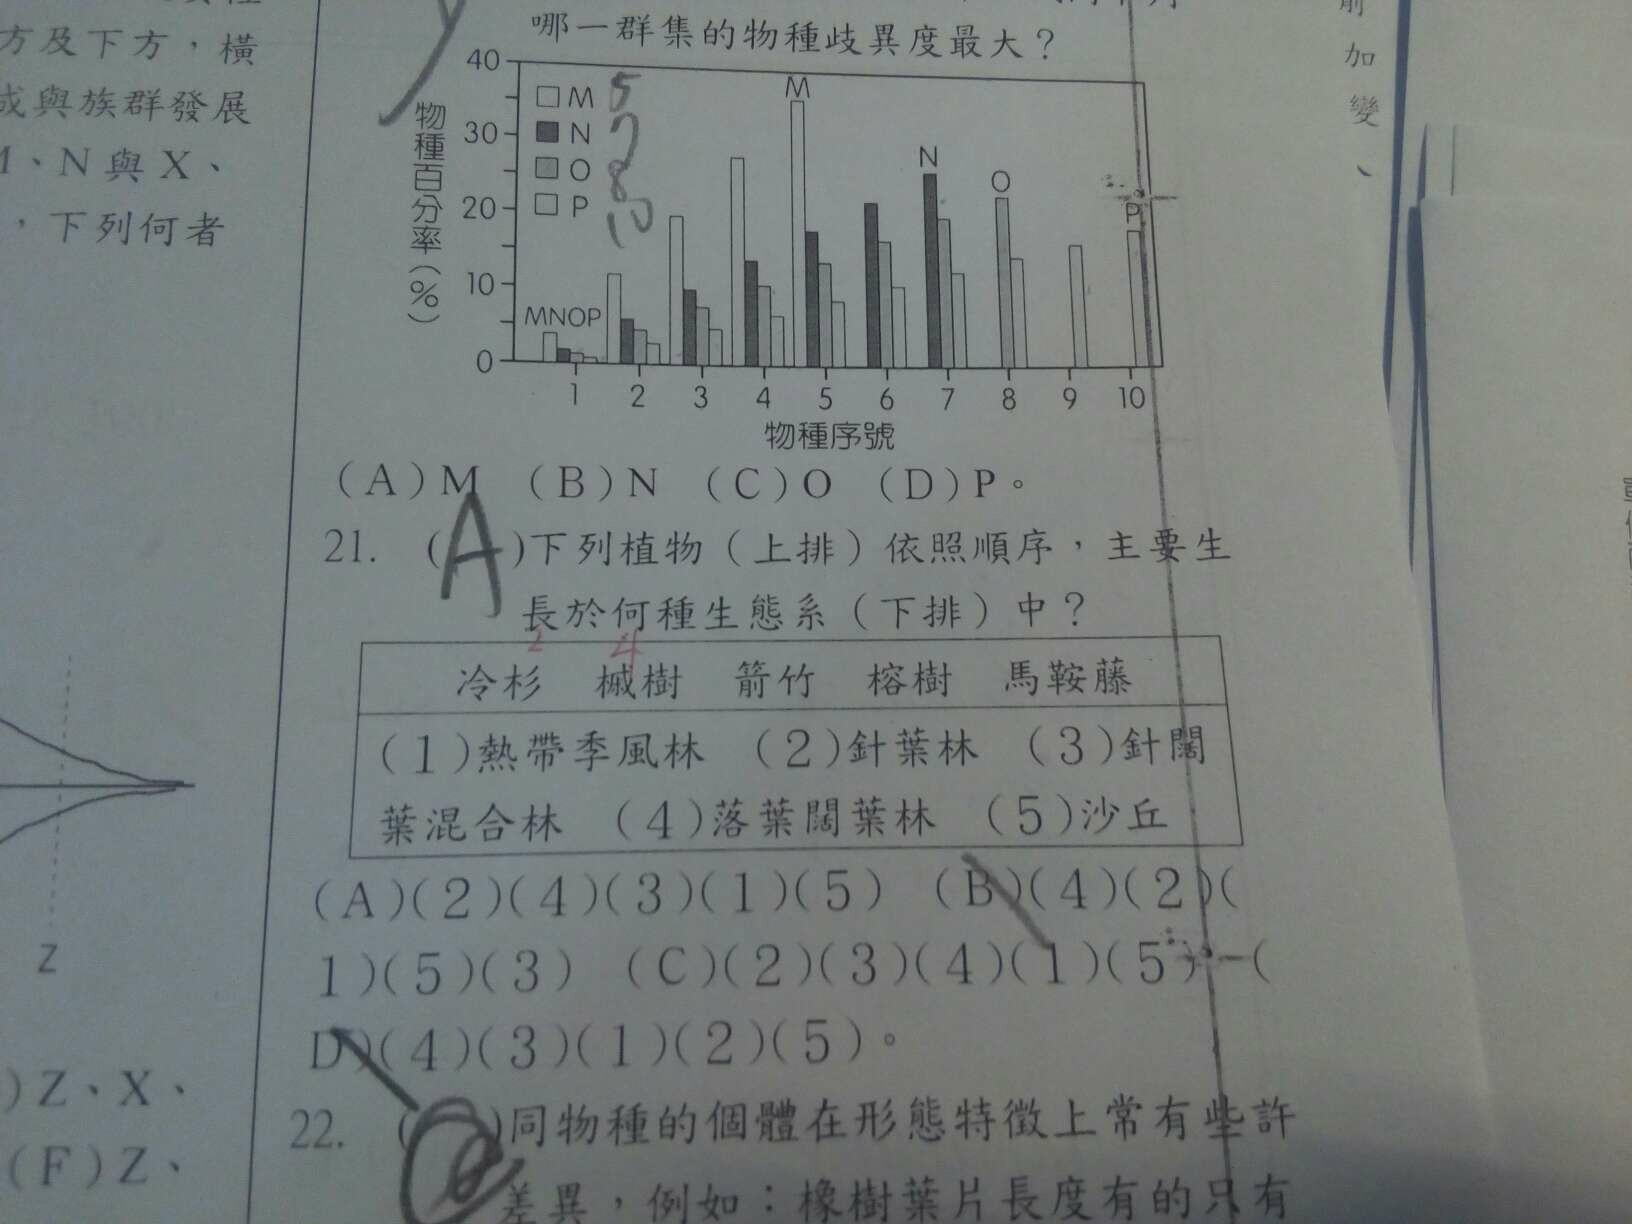 方及下方，橫
或與族群發展
M、N與X、
，下列何者
Z
)Z、X、
(F)Z、
哪一群集的物種歧異度最大？
物種百分率(%)
40
30
20
10
0
M 5
N 7
O 8
P 10
MNOP
M
N
O
P
1 2 3 4 5 6 7 8 9 10
物種序號
(A)M (B)N (C)O (D)P。
21. (A)下列植物（上排）依照順序，主要生
長於何種生態系（下排）中？
2 4
冷杉 槭樹 箭竹 榕樹 馬鞍藤
(1)熱帶季風林 (2)針葉林 (3)針闊
葉混合林 (4)落葉闊葉林 (5)沙丘
(A)(2)(4)(3)(1)(5) (B)(4)(2)(
1)(5)(3) (C)(2)(3)(4)(1)(5) (
D)(4)(3)(1)(2)(5)。
22. ( )同物種的個體在形態特徵上常有些許
差異，例如：橡樹葉片長度有的只有
前
加
變
、